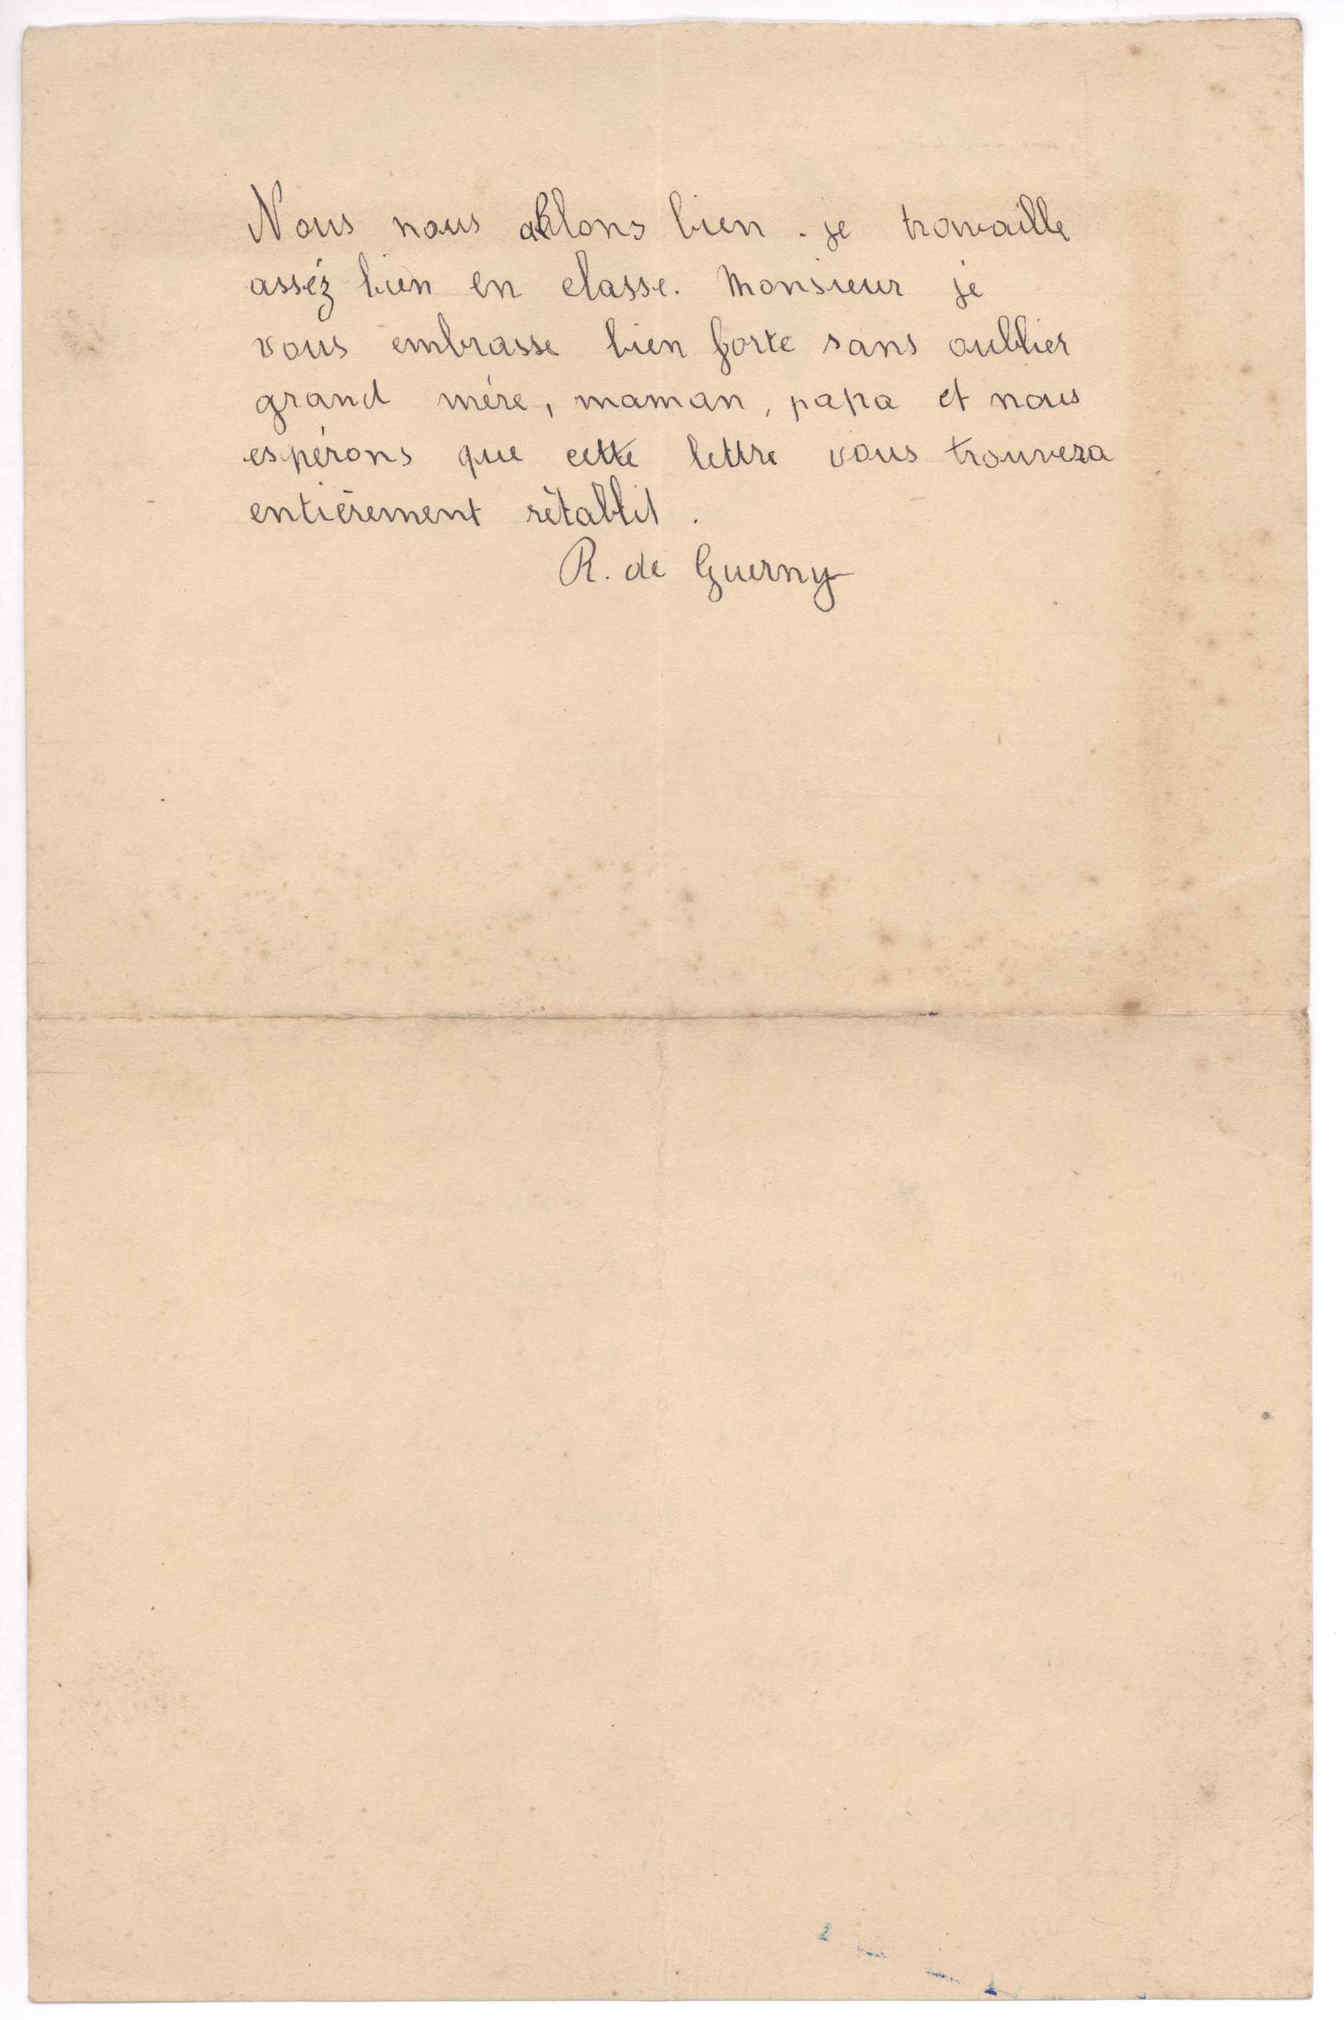 Nous nous allons bien. je travaille
asséz bien en classe. Monsieur je
vous embrasse bien forte sans oublier
grand mére, maman, papa et nous
espérons que cette lettre vous trouvera
entiérement rétablit.
R. de Guerny